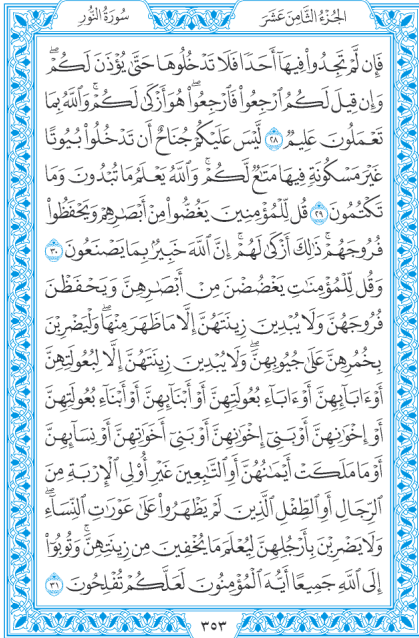 الجُزْءُ الثَّامِنَ عَشَرَ سُورَةُ النُّورِ
فَإِن لَّمْ تَجِدُوا۟ فِيهَآ أَحَدًا فَلَا تَدْخُلُوهَا حَتَّىٰ يُؤْذَنَ لَكُمْ ۖ
وَإِن قِيلَ لَكُمُ ٱرْجِعُوا۟ فَٱرْجِعُوا۟ ۖ هُوَ أَزْكَىٰ لَكُمْ ۚ وَٱللَّهُ بِمَا
تَعْمَلُونَ عَلِيمٌ ٢٨ لَّيْسَ عَلَيْكُمْ جُنَاحٌ أَن تَدْخُلُوا۟ بُيُوتًا
غَيْرَ مَسْكُونَةٍ فِيهَا مَتَٰعٌ لَّكُمْ ۚ وَٱللَّهُ يَعْلَمُ مَا تُبْدُونَ وَمَا
تَكْتُمُونَ ٢٩ قُل لِّلْمُؤْمِنِينَ يَغُضُّوا۟ مِنْ أَبْصَٰرِهِمْ وَيَحْفَظُوا۟
فُرُوجَهُمْ ۚ ذَٰلِكَ أَزْكَىٰ لَهُمْ ۗ إِنَّ ٱللَّهَ خَبِيرٌۢ بِمَا يَصْنَعُونَ ٣٠
وَقُل لِّلْمُؤْمِنَٰتِ يَغْضُضْنَ مِنْ أَبْصَٰرِهِنَّ وَيَحْفَظْنَ
فُرُوجَهُنَّ وَلَا يُبْدِينَ زِينَتَهُنَّ إِلَّا مَا ظَهَرَ مِنْهَا ۖ وَلْيَضْرِبْنَ
بِخُمُرِهِنَّ عَلَىٰ جُيُوبِهِنَّ ۖ وَلَا يُبْدِينَ زِينَتَهُنَّ إِلَّا لِبُعُولَتِهِنَّ
أَوْ ءَابَآئِهِنَّ أَوْ ءَابَآءِ بُعُولَتِهِنَّ أَوْ أَبْنَآئِهِنَّ أَوْ أَبْنَآءِ بُعُولَتِهِنَّ
أَوْ إِخْوَٰنِهِنَّ أَوْ بَنِىٓ إِخْوَٰنِهِنَّ أَوْ بَنِىٓ أَخَوَٰتِهِنَّ أَوْ نِسَآئِهِنَّ
أَوْ مَا مَلَكَتْ أَيْمَٰنُهُنَّ أَوِ ٱلتَّٰبِعِينَ غَيْرِ أُو۟لِى ٱلْإِرْبَةِ مِنَ
ٱلرِّجَالِ أَوِ ٱلطِّفْلِ ٱلَّذِينَ لَمْ يَظْهَرُوا۟ عَلَىٰ عَوْرَٰتِ ٱلنِّسَآءِ ۖ
وَلَا يَضْرِبْنَ بِأَرْجُلِهِنَّ لِيُعْلَمَ مَا يُخْفِينَ مِن زِينَتِهِنَّ ۚ وَتُوبُوٓا۟
إِلَى ٱللَّهِ جَمِيعًا أَيُّهَ ٱلْمُؤْمِنُونَ لَعَلَّكُمْ تُفْلِحُونَ ٣١
٣٥٣